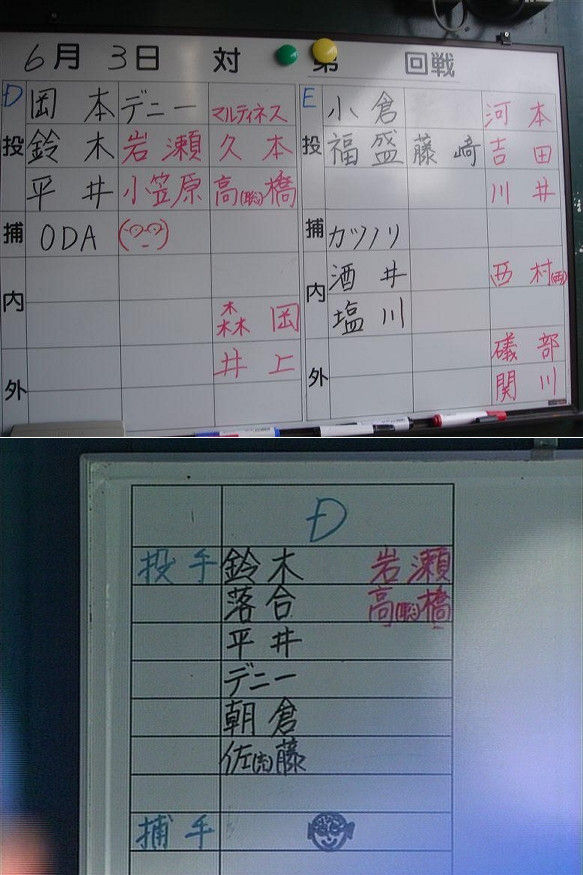 6月 3日 対 第 回戦
D 岡本 デニー マルティネス E 小倉 河本
投 鈴木 岩瀬 久本 投 福盛 藤崎 吉田
平井 小笠原 高(聡)橋 川井
捕 ODA 捕 カツノリ
内 内 酒井 西村
森岡 塩川
井上 礒部
外 外 関川
D
投手 鈴木 岩瀬
落合 高(聡)橋
平井
デニー
朝倉
佐(充)藤
捕手